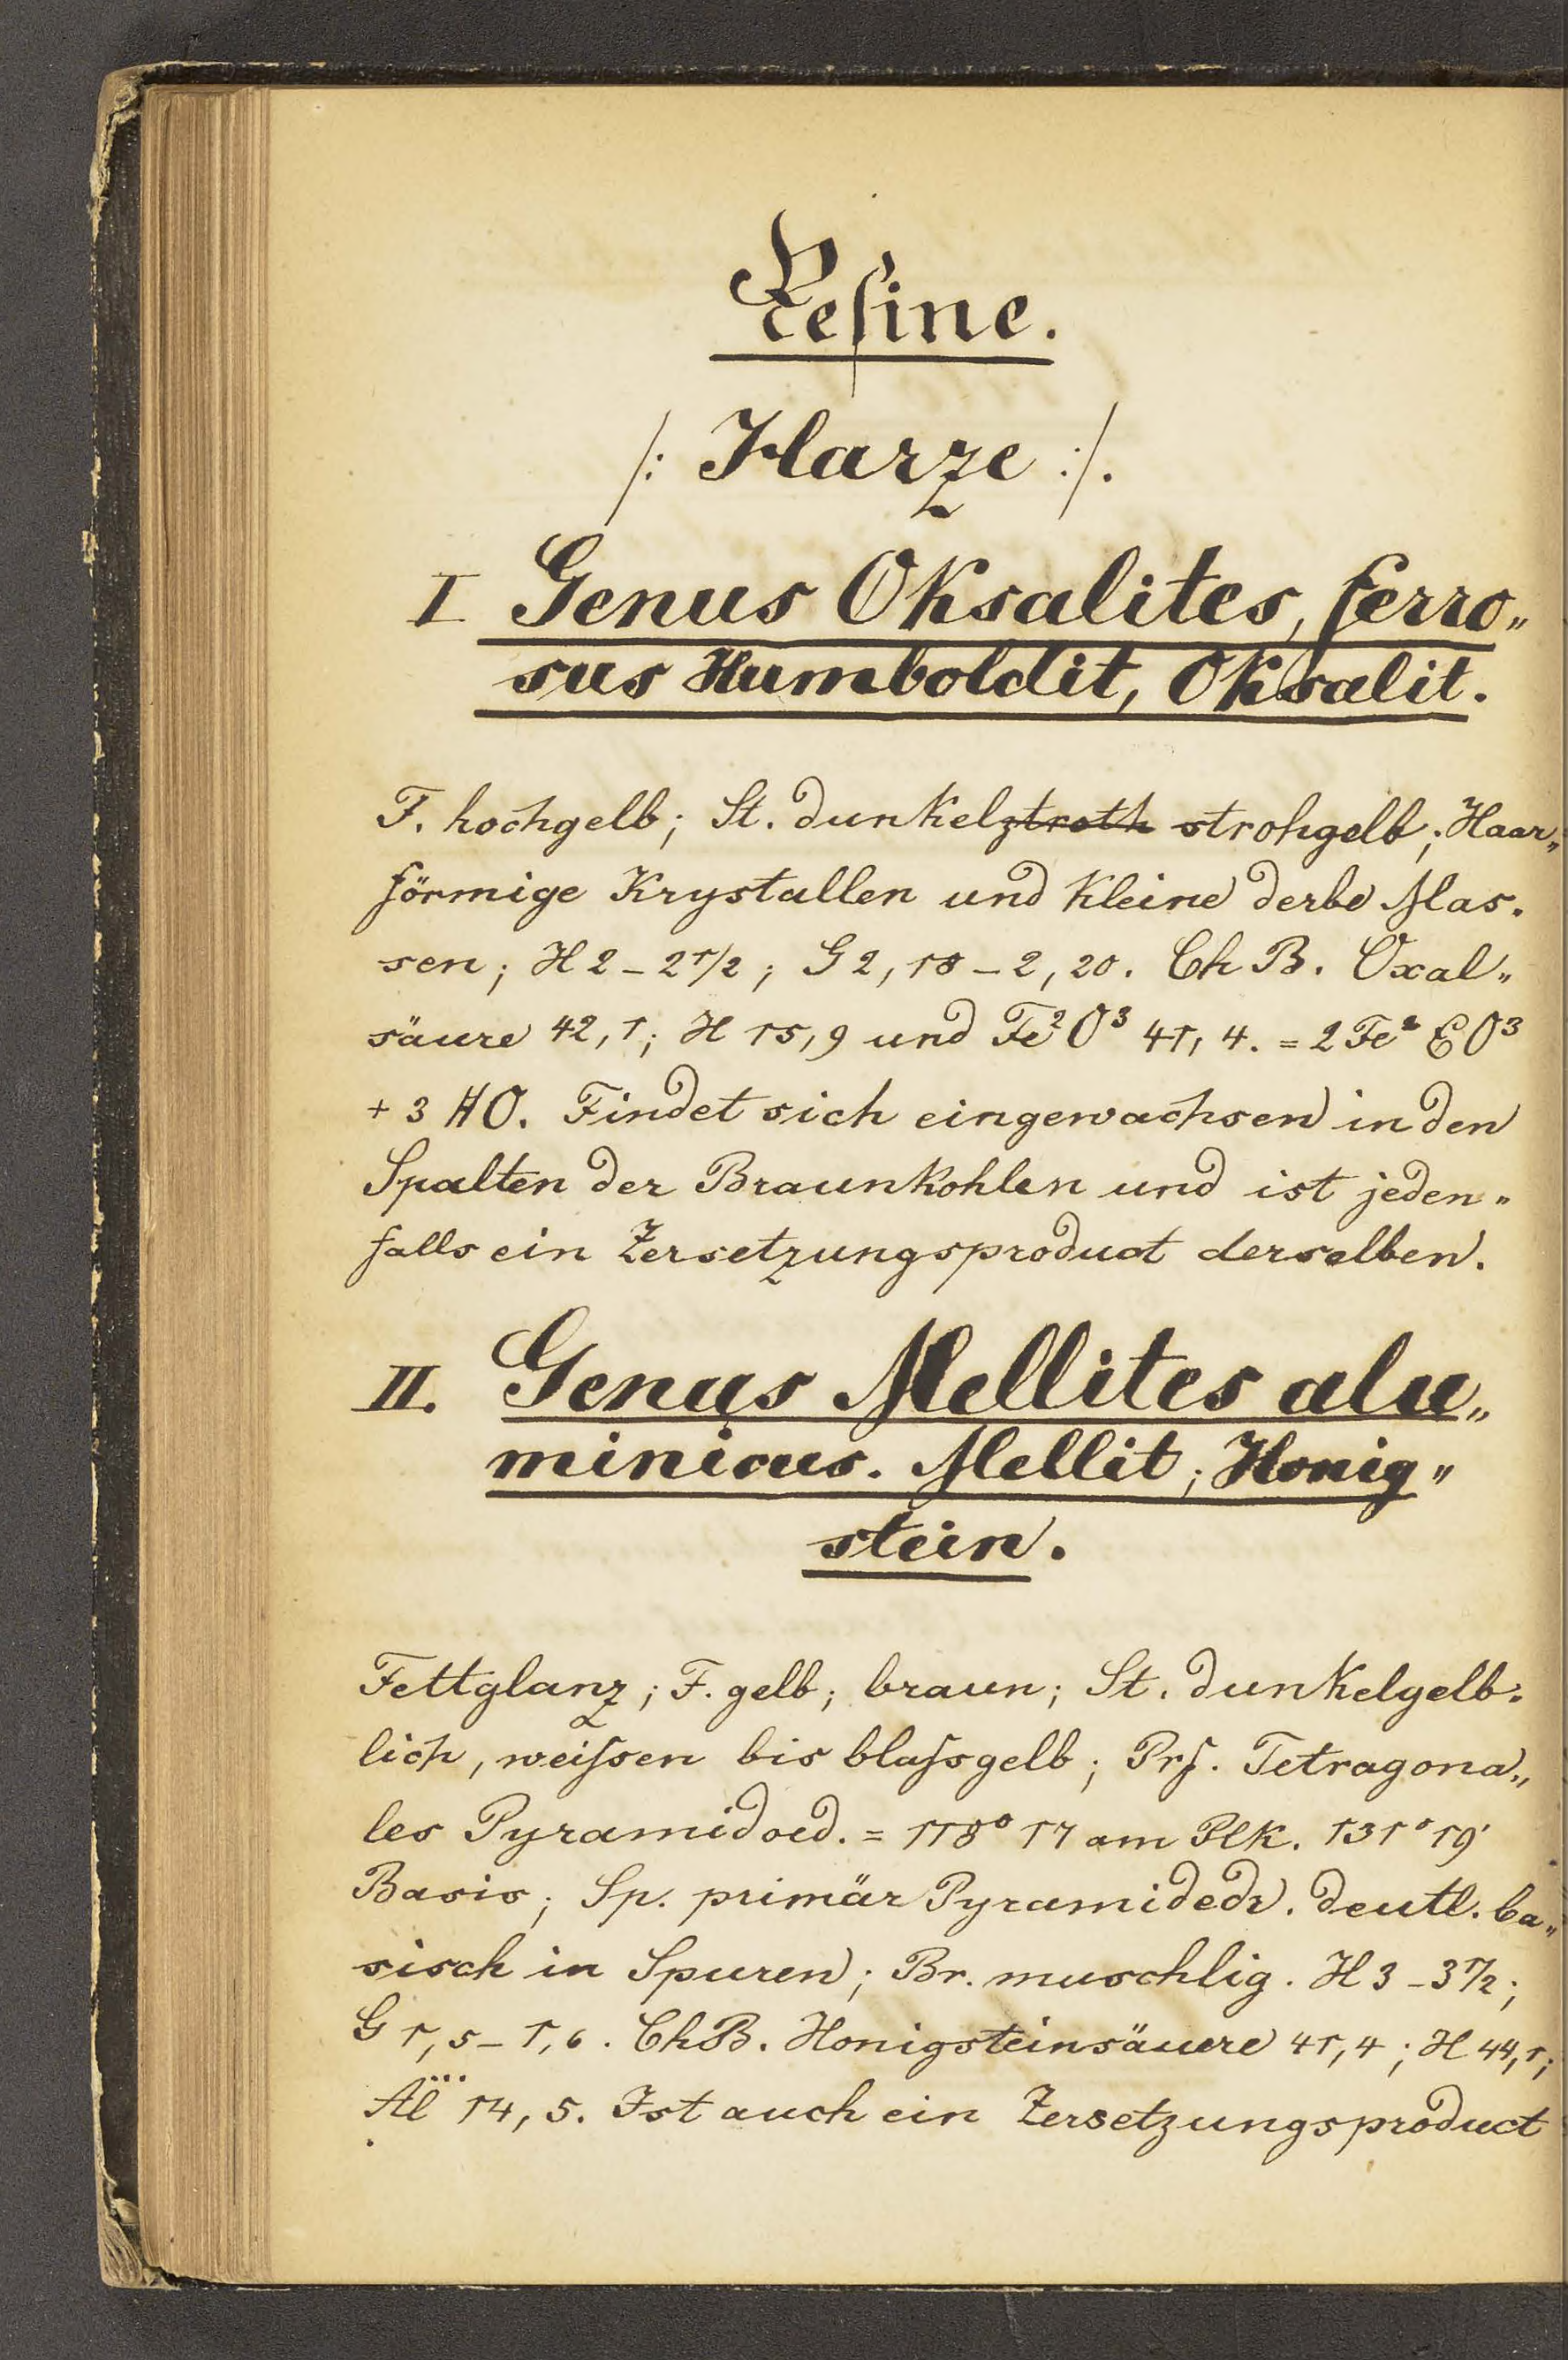 Resine.
/: Harze :/.
I Genus Oksalites, ferro„
sus Humboldit, Oksalit.
F. hochgelb; St. dunkelztroth strohgelb; Haar„
förmige Krystallen und kleine derbe Mas.
sen; H 2 – 2 1/2; G 2,18 – 2,20. Ch B. Oxal„
säure 42,1; H 15,9 und Fe²O³ 41,4. = 2 Fe² O³
+ 3 HO. Findet sich eingewachsen in den
Spalten der Braunkohlen und ist jeden„
falls ein Zersetzungsproduct derselben.
II. Genus Mellites alu„
minicus. Mellit; Honig„
stein.
Fettglanz; F. gelb; braun; St. dunkelgelb:
lich, weißen bis blaßgelb; Prf. Tetragona„
les Pyramidoed. = 118° 17 am Plk. 131° 19'
Basis; Sp. primär Pyramidedr. deutl. ba„
sisch in Spuren; Br. muschlig. H 3 – 3 1/2;
G 1,5 – 1,6. ChB. Honigsteinsäuere 41,4; H 44,1;
Äl 14,5. Ist auch ein Zersetzungsproduct